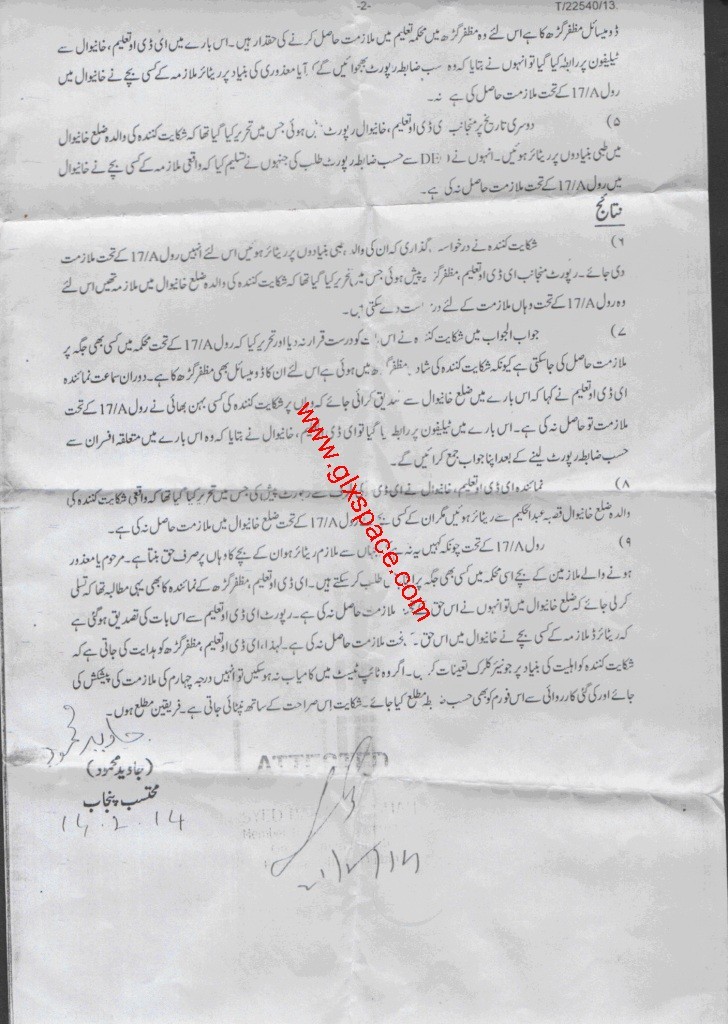 -2-
T/22540/13.
ڈومیسائل مظفر گڑھ کا ہے اس لئے وہ مظفر گڑھ میں محکمہ تعلیم میں ملازمت حاصل کرنے کی حقدار ہیں۔ اس بارے میں ای ڈی او تعلیم، خانیوال سے
ٹیلیفون پر رابطہ کیا گیا تو انہوں نے بتایا کہ وہ حسب ضابطہ رپورٹ بھجوائیں گے کہ آیا معذوری کی بنیاد پر ریٹائر ملازمہ کے کسی بچے نے خانیوال میں
رول 17/A کے تحت ملازمت حاصل کی ہے نہ۔
۵) دوسری تاریخ پر منجانب ای ڈی او تعلیم، خانیوال رپورٹ ہوئی جس میں تحریر کیا گیا تھا کہ شکایت کنندہ کی والدہ ضلع خانیوال
میں طبی بنیادوں پر ریٹائر ہوئیں۔ انہوں نے DE سے حسب ضابطہ رپورٹ طلب کی جنہوں نے تسلیم کیا کہ واقعی ملازمہ کے کسی بچے نے خانیوال
میں رول 17/A کے تحت ملازمت حاصل نہ کی ہے۔
نتائج
۶) شکایت کنندہ نے درخواست گذاری کہ ان کی والدہ طبی بنیادوں پر ریٹائر ہوئیں اس لئے انہیں رول 17/A کے تحت ملازمت
دی جائے۔ رپورٹ منجانب ای ڈی او تعلیم، مظفر گڑھ پیش ہوئی جس میں تحریر کیا گیا تھا کہ شکایت کنندہ کی والدہ ضلع خانیوال میں ملازمہ تھیں اس لئے
وہ رول 17/A کے تحت وہاں ملازمت کے لئے درخواست دے سکتی ہیں۔
۷) جواب الجواب میں شکایت کنندہ نے اس کو درست قرار نہ دیا اور تحریر کیا کہ رول 17/A کے تحت محکمہ میں کسی بھی جگہ پر
ملازمت حاصل کی جا سکتی ہے کیونکہ شکایت کنندہ کی شادی مظفر گڑھ میں ہوئی ہے اس لئے ان کا ڈومیسائل بھی مظفر گڑھ کا ہے۔ دوران سماعت نمائندہ
ای ڈی او تعلیم نے کہا کہ اس بارے میں ضلع خانیوال سے تصدیق کرائی جائے کہ وہاں پر شکایت کنندہ کی کسی بہن بھائی نے رول 17/A کے تحت
ملازمت تو حاصل نہ کی ہے۔ اس بارے میں ٹیلیفون پر رابطہ کیا گیا تو ای ڈی او تعلیم، خانیوال نے بتایا کہ وہ اس بارے میں متعلقہ افسران سے
حسب ضابطہ رپورٹ لینے کے بعد اپنا جواب جمع کرائیں گے۔
۸) نمائندہ ای ڈی او تعلیم، خانیوال نے ای ڈی او کی طرف سے رپورٹ پیش کی جس میں تحریر کیا گیا تھا کہ واقعی شکایت کنندہ کی
والدہ ضلع خانیوال قصبہ عبدالحکیم سے ریٹائر ہوئیں مگر ان کے کسی بچے رول 17/A کے تحت ضلع خانیوال میں ملازمت حاصل نہ کی ہے۔
۹) رول 17/A کے تحت چونکہ کہیں یہ نہ ہے جہاں سے ملازم ریٹائر ہو ان کے بچے کا وہاں پر صرف حق بنتا ہے۔ مرحوم یا معذور
ہونے والے ملازمین کے بچے اسی محکمہ میں کسی بھی جگہ پر طلب کر سکتے ہیں۔ ای ڈی او تعلیم، مظفر گڑھ کے نمائندہ کا بھی یہی مطالبہ تھا کہ تسلی
کر لی جائے کہ ضلع خانیوال میں تو انہوں نے اس حق ملازمت حاصل نہ کی ہے۔ رپورٹ ای ڈی او تعلیم سے اس بات کی تصدیق ہو گئی ہے
کہ ریٹائرڈ ملازمہ کے کسی بچے نے خانیوال میں اس حق تحت ملازمت حاصل نہ کی ہے۔ لہذا، ای ڈی او تعلیم، مظفر گڑھ کو ہدایت کی جاتی ہے کہ
شکایت کنندہ کو اہلیت کی بنیاد پر جونیئر کلرک تعینات کریں۔ اگر وہ ٹائپ ٹیسٹ میں کامیاب نہ ہو سکیں تو انہیں درجہ چہارم کی ملازمت کی پیشکش کی
جائے اور کی گئی کارروائی سے اس فورم کو بھی حسب ضابطہ مطلع کیا جائے۔ شکایت اس صراحت کے ساتھ نپٹائی جاتی ہے۔ فریقین مطلع ہوں۔
جاوید محمود
(جاوید محمود)
محتسب پنجاب
14.2.14
ATTESTED
www.glxspace.com